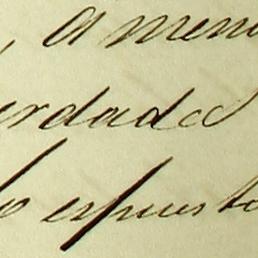 , a men
erdad
lo espuesto